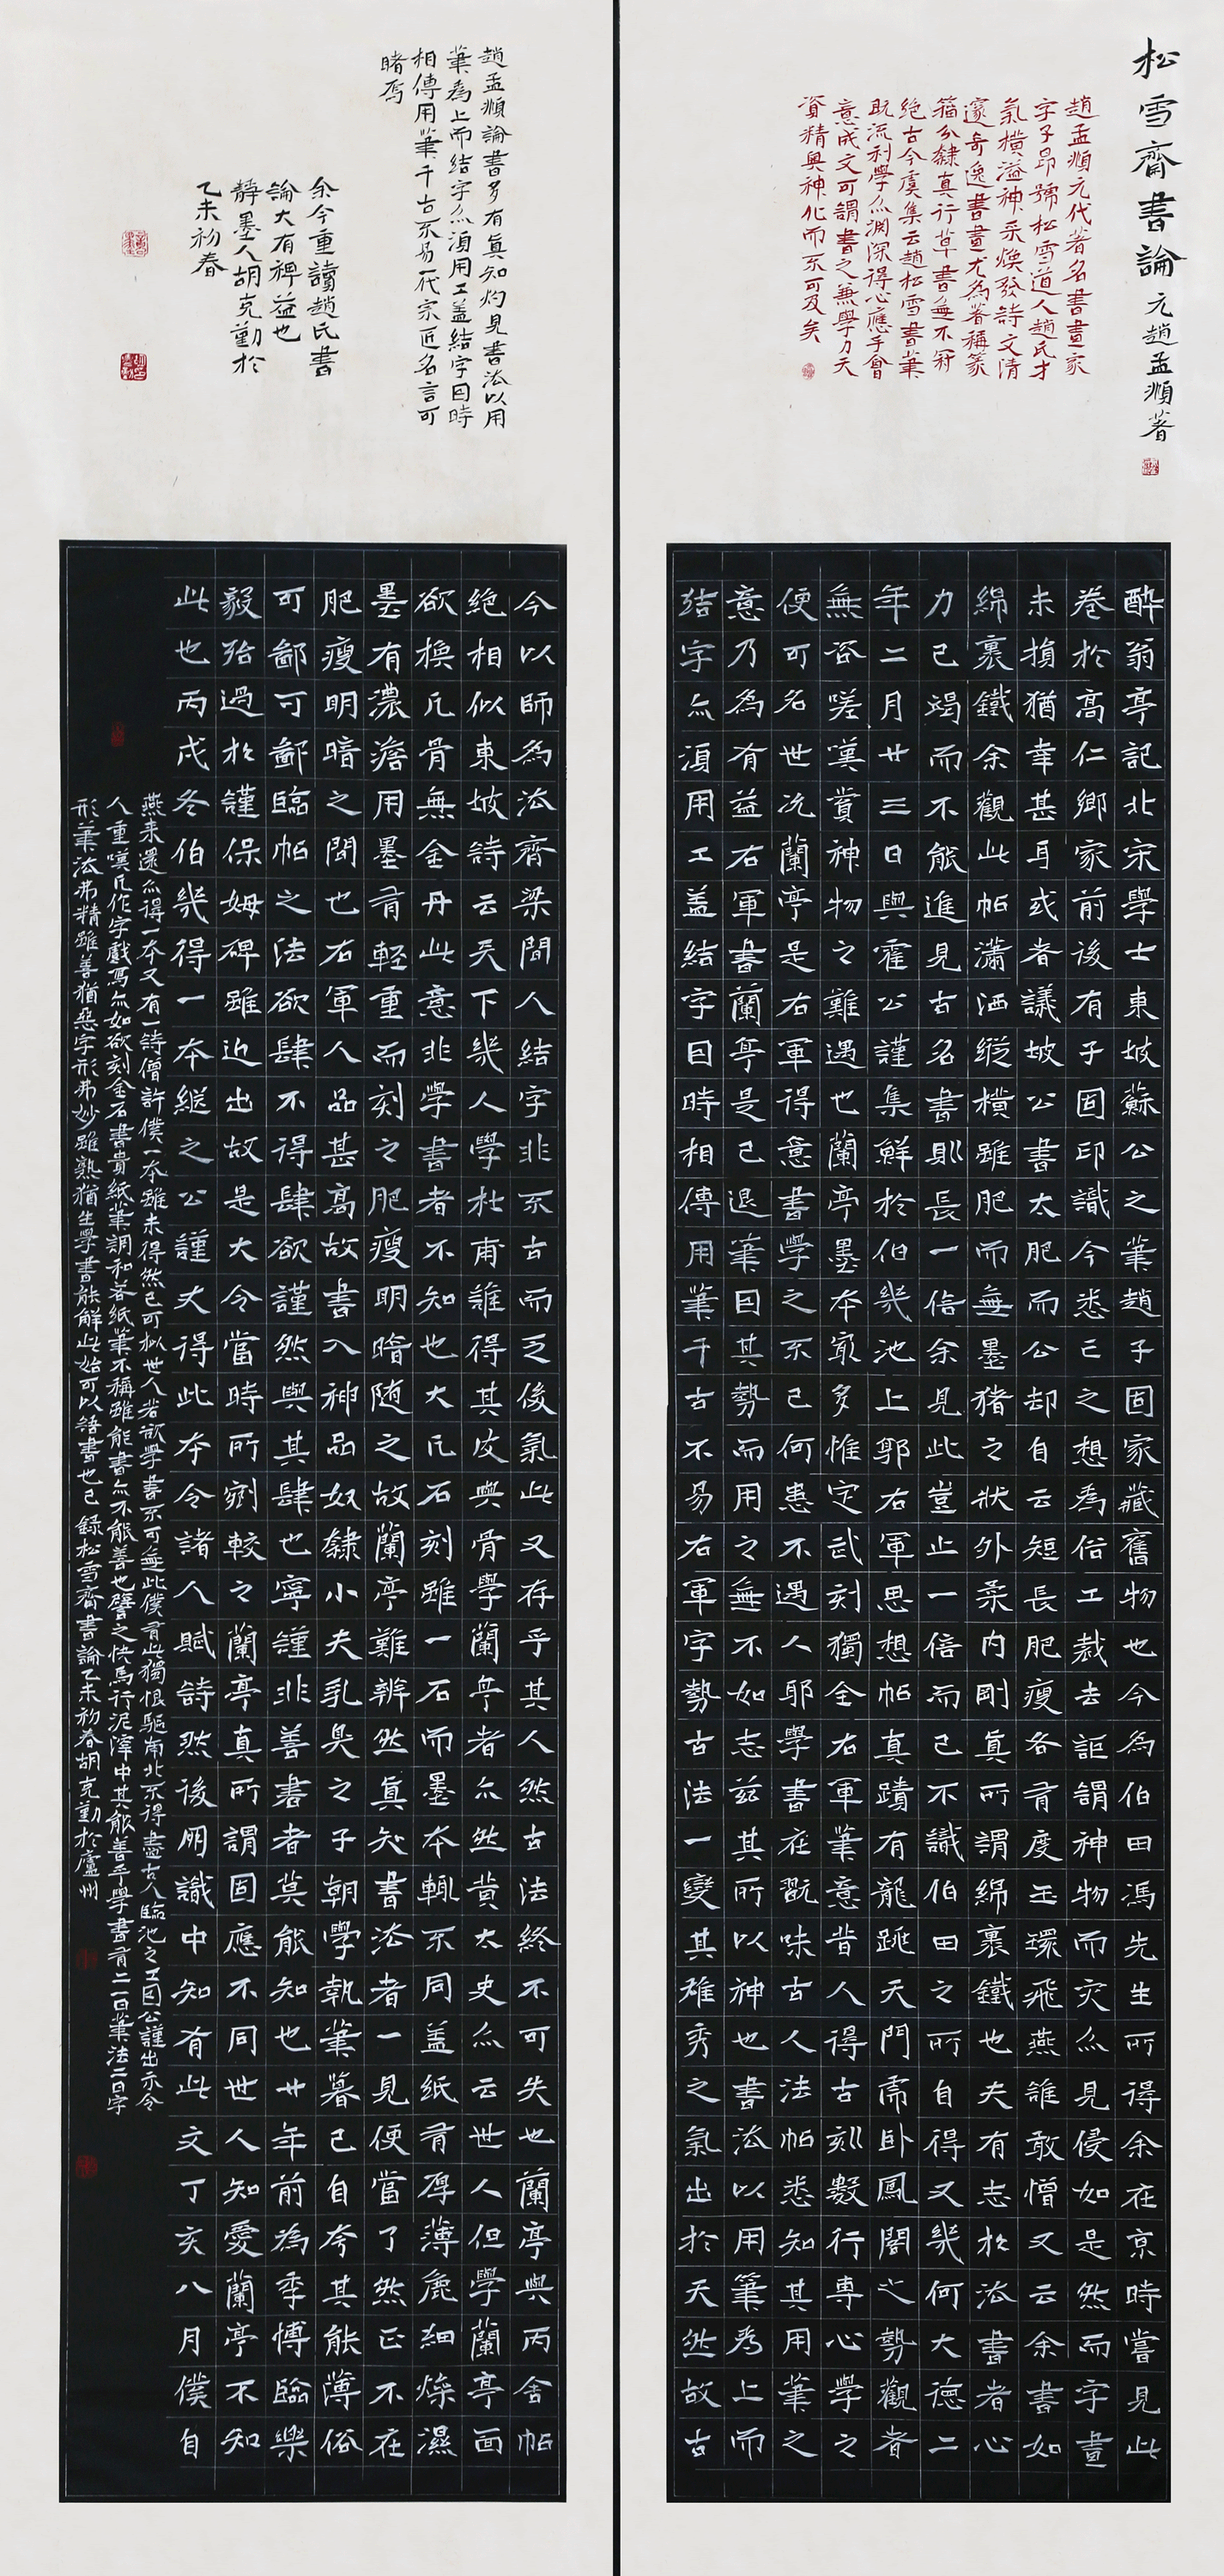 松雪齋書論 元趙孟頫著
趙孟頫元代著名書畫家
字子昂號松雪道人趙氏才
氣橫溢神采煥發詩文清
邃奇逸書畫尤為著稱篆
籀分隸真行草書無不冠
絕古今虞集云趙松雪書筆
既流利學亦淵深得心應手會
意成文可謂書之兼學力天
資精奧神化而不可及矣
酔翁亭記北宋學士東坡蘇公之筆趙子固家藏舊物也今為伯田馮先生所得余在京時嘗見此
卷於高仁卿家前後有子固印識今悉亡之想為俗工裁去詎謂神物而灾亦見侵如是然而字畫
未損猶幸甚耳或者議坡公書太肥而公却自云短長肥瘦各有度玉環飛燕誰敢憎又云余書如
綿裹鐵余觀此帖瀟洒縱橫雖肥而無墨猪之狀外柔內剛真所謂綿裹鐵也夫有志於法書者心
力已竭而不能進見古名書則長一倍余見此豈止一倍而已不識伯田之所自得又幾何大德二
年二月廿三日與霍公謹集鮮於伯幾池上郭右軍思想帖真蹟有龍跳天門虎卧鳳閣之勢觀者
無咨嗟嘆賞神物之難遇也蘭亭墨本最多惟定武刻獨全右軍筆意昔人得古刻數行專心學之
便可名世況蘭亭是右軍得意書學之不已何患不遇人耶學書在翫味古人法帖悉知其用筆之
意乃為有益右軍書蘭亭是已退筆因其勢而用之無不如志茲其所以神也書法以用筆為上而
結字亦須用工盖結字因時相傳用筆千古不易右軍字勢古法一變其雄秀之氣出於天然故古
趙孟頫論書多有真知灼見書法以用
筆為上而結字亦須用工盖結字因時
相傳用筆千古不易一代宗匠名言可
睹焉
余今重讀趙氏書
論大有裨益也
靜墨人胡克勤於
乙未初春
今以師為法齊梁間人結字非不古而乏俊氣此又存乎其人然古法終不可失也蘭亭與丙舍帖
絕相似東坡詩云天下幾人學杜甫誰得其皮與骨學蘭亭者亦然黃太史亦云世人但學蘭亭面
欲換凡骨無金丹此意非學書者不知也大凡石刻雖一石而墨本輒不同盖紙有厚薄麁細燥濕
墨有濃澹用墨有輕重而刻之肥瘦明暗隨之故蘭亭難辨然真知書法者一見便當了然正不在
肥瘦明暗之間也右軍人品甚高故書入神品奴隸小夫乳臭之子朝學執筆暮已自夸其能薄俗
可鄙可鄙臨帖之法欲肆不得肆欲謹然與其肆也寧謹非善書者莫能知也廿年前為季博臨樂
毅殆過於謹保姆碑雖近出故是大令當時所刻較之蘭亭真所謂固應不同世人知愛蘭亭不知
此也丙戌冬伯幾得一本繼之公謹大得此本令諸人賦詩然後朋識中知有此文丁亥八月僕自
燕來還亦得一本又有一詩僧許僕一本雖未得然已可擬世人若欲學書不可無此僕有此獨恨驅南北不得盡古人臨池之工因公謹出示令
人重嘆凡作字戲寫亦如欲刻金石書貴紙筆調和若紙筆不稱雖能書亦不能善也譬之快馬行泥濘中其能善乎學書有二一曰筆法二曰字
形筆法弗精雖善猶惡字形弗妙雖熟猶生學書能解此始可以語書也已 錄松雪齋書論乙未初春胡克勤於廬州